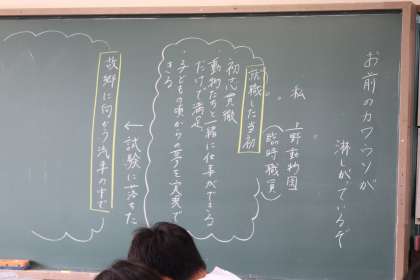 お前のカワウソが
淋しがっているぞ
私
上野動物園
臨時職員
就職した当初
初志貫徹
・動物たちと一緒に仕事ができる
だけで満足
・子どもの頃からの夢を実現で
きる
←試験に落ちた
故郷に向かう汽車の中で